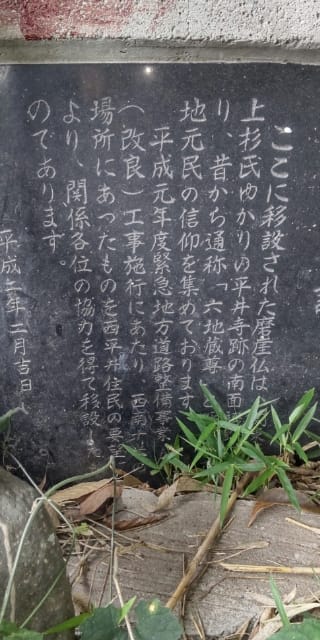 ここに移設された磨崖仏は
上杉氏ゆかりの平井寺跡の南面
り、昔から通称「六地蔵尊」と
地元民の信仰を集めております
平成元年度緊急地方道路整備事業
（改良）工事施行にあたり 西南
場所にあったものを西平井住民の要
より、関係各位の協力を得て移設した
のであります。
平成二年二月吉日